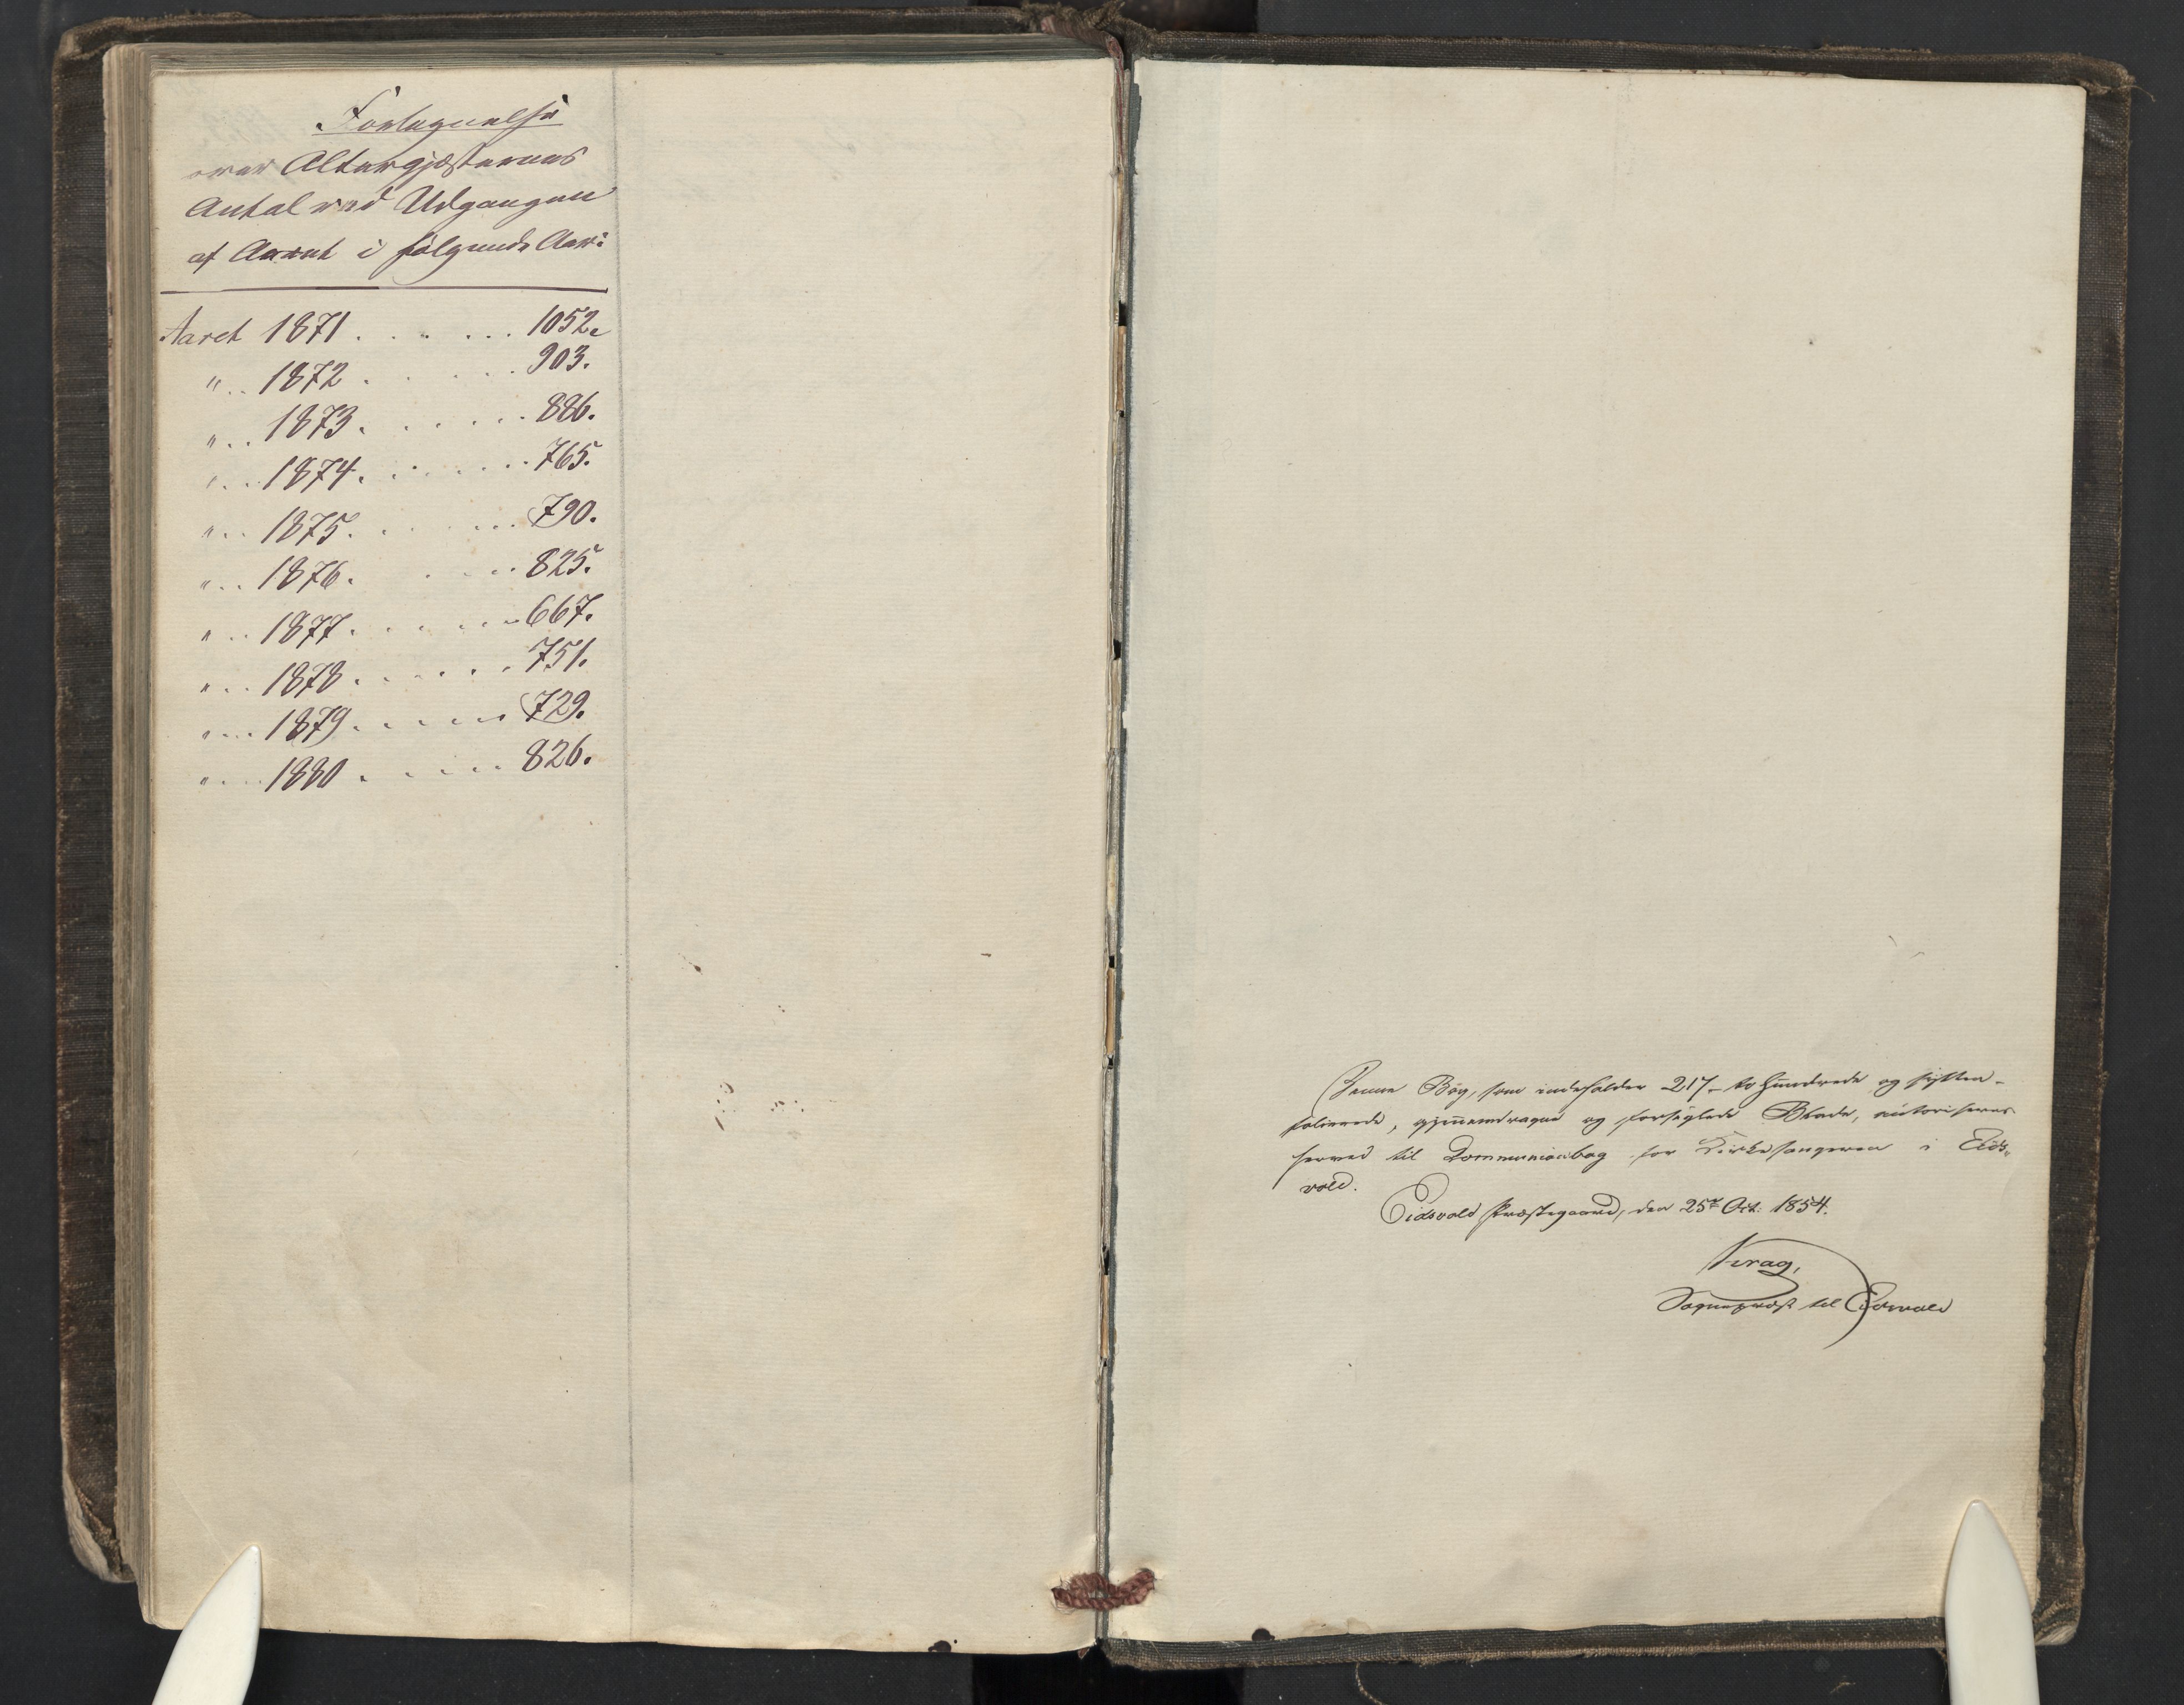 Fortegnelse
over Altergjæsternes
Antal ved Udgangen
af Aaret i følgende Aar:
Aaret 1871 . . . . . . 1052.
" . . 1872 . . . . . . 903.
" . . 1873 . . . . . . 886.
" . . 1874 . . . . . . 765.
" . . 1875 . . . . . . 790.
" . . 1876 . . . . . 825.
" . . 1877 . . . . . . 667.
" . . 1878 . . . . . . 751.
" . . 1879 . . . . . 729.
" . . 1880 . . . . . 826.
Denne Bog, som indeholder 217 - to hundrede og sytten -
folierede, gjennemdragne og forseglede Blade, autoriseres
herved til Communionbog for Kirkesangeren i Eids-
vold.
Eidsvold Præstegaard, den 25de Oct. 1854.
Krag,
Sognepræst til Eidsvold